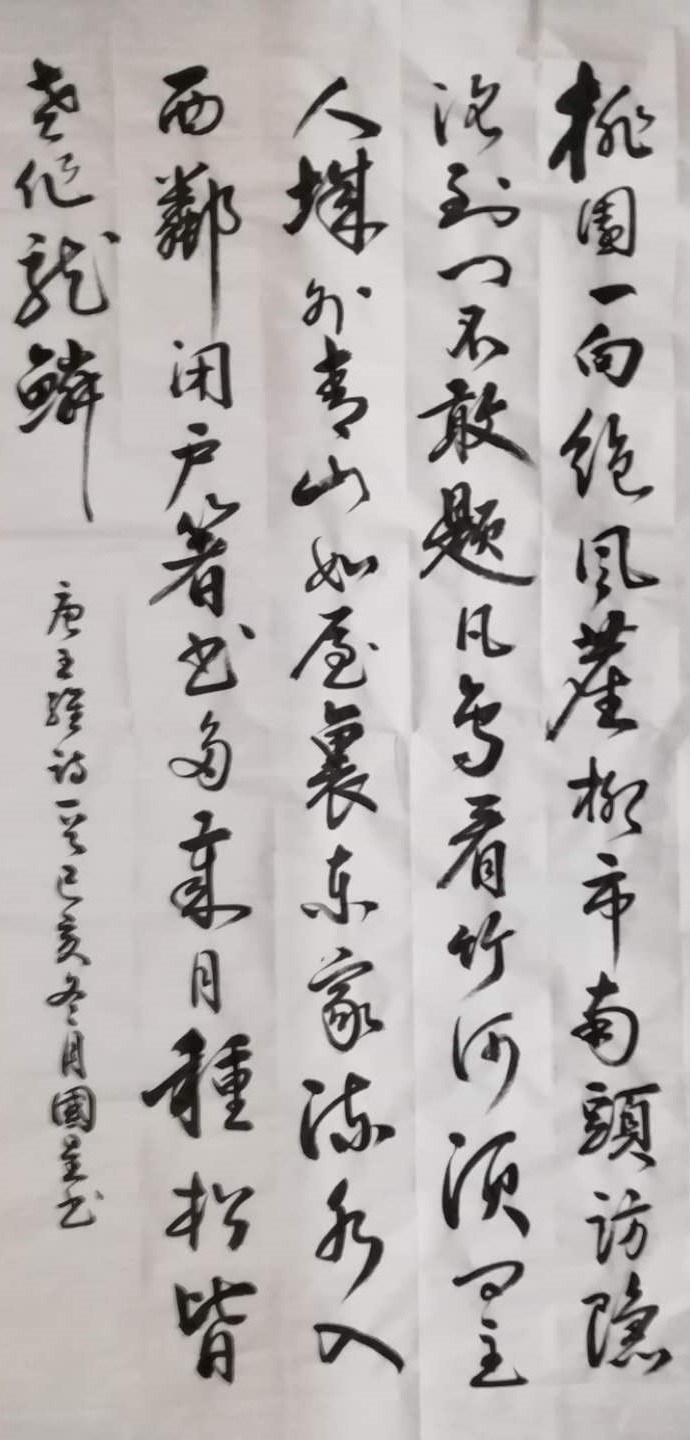 桃園一向絶風塵柳市南頭訪隱
淪到門不敢題凡鳥看竹何須問主
人城外青山如屋裏東家流水入
西鄰閉戶著書多歲月種松皆
老作龍鱗
唐王維詩一首己亥冬月國書